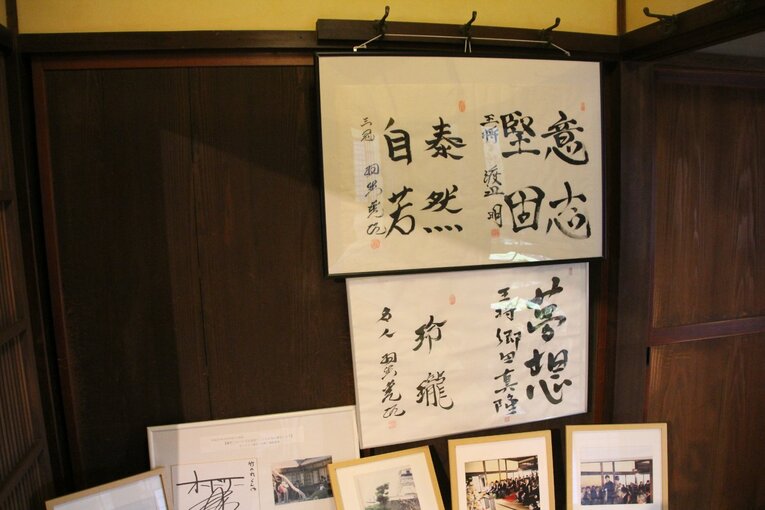 意志
堅固
王将 渡辺明
泰然
自若
三冠 羽生善治
夢想
王将 郷田真隆
玲瓏
名人 羽生善治